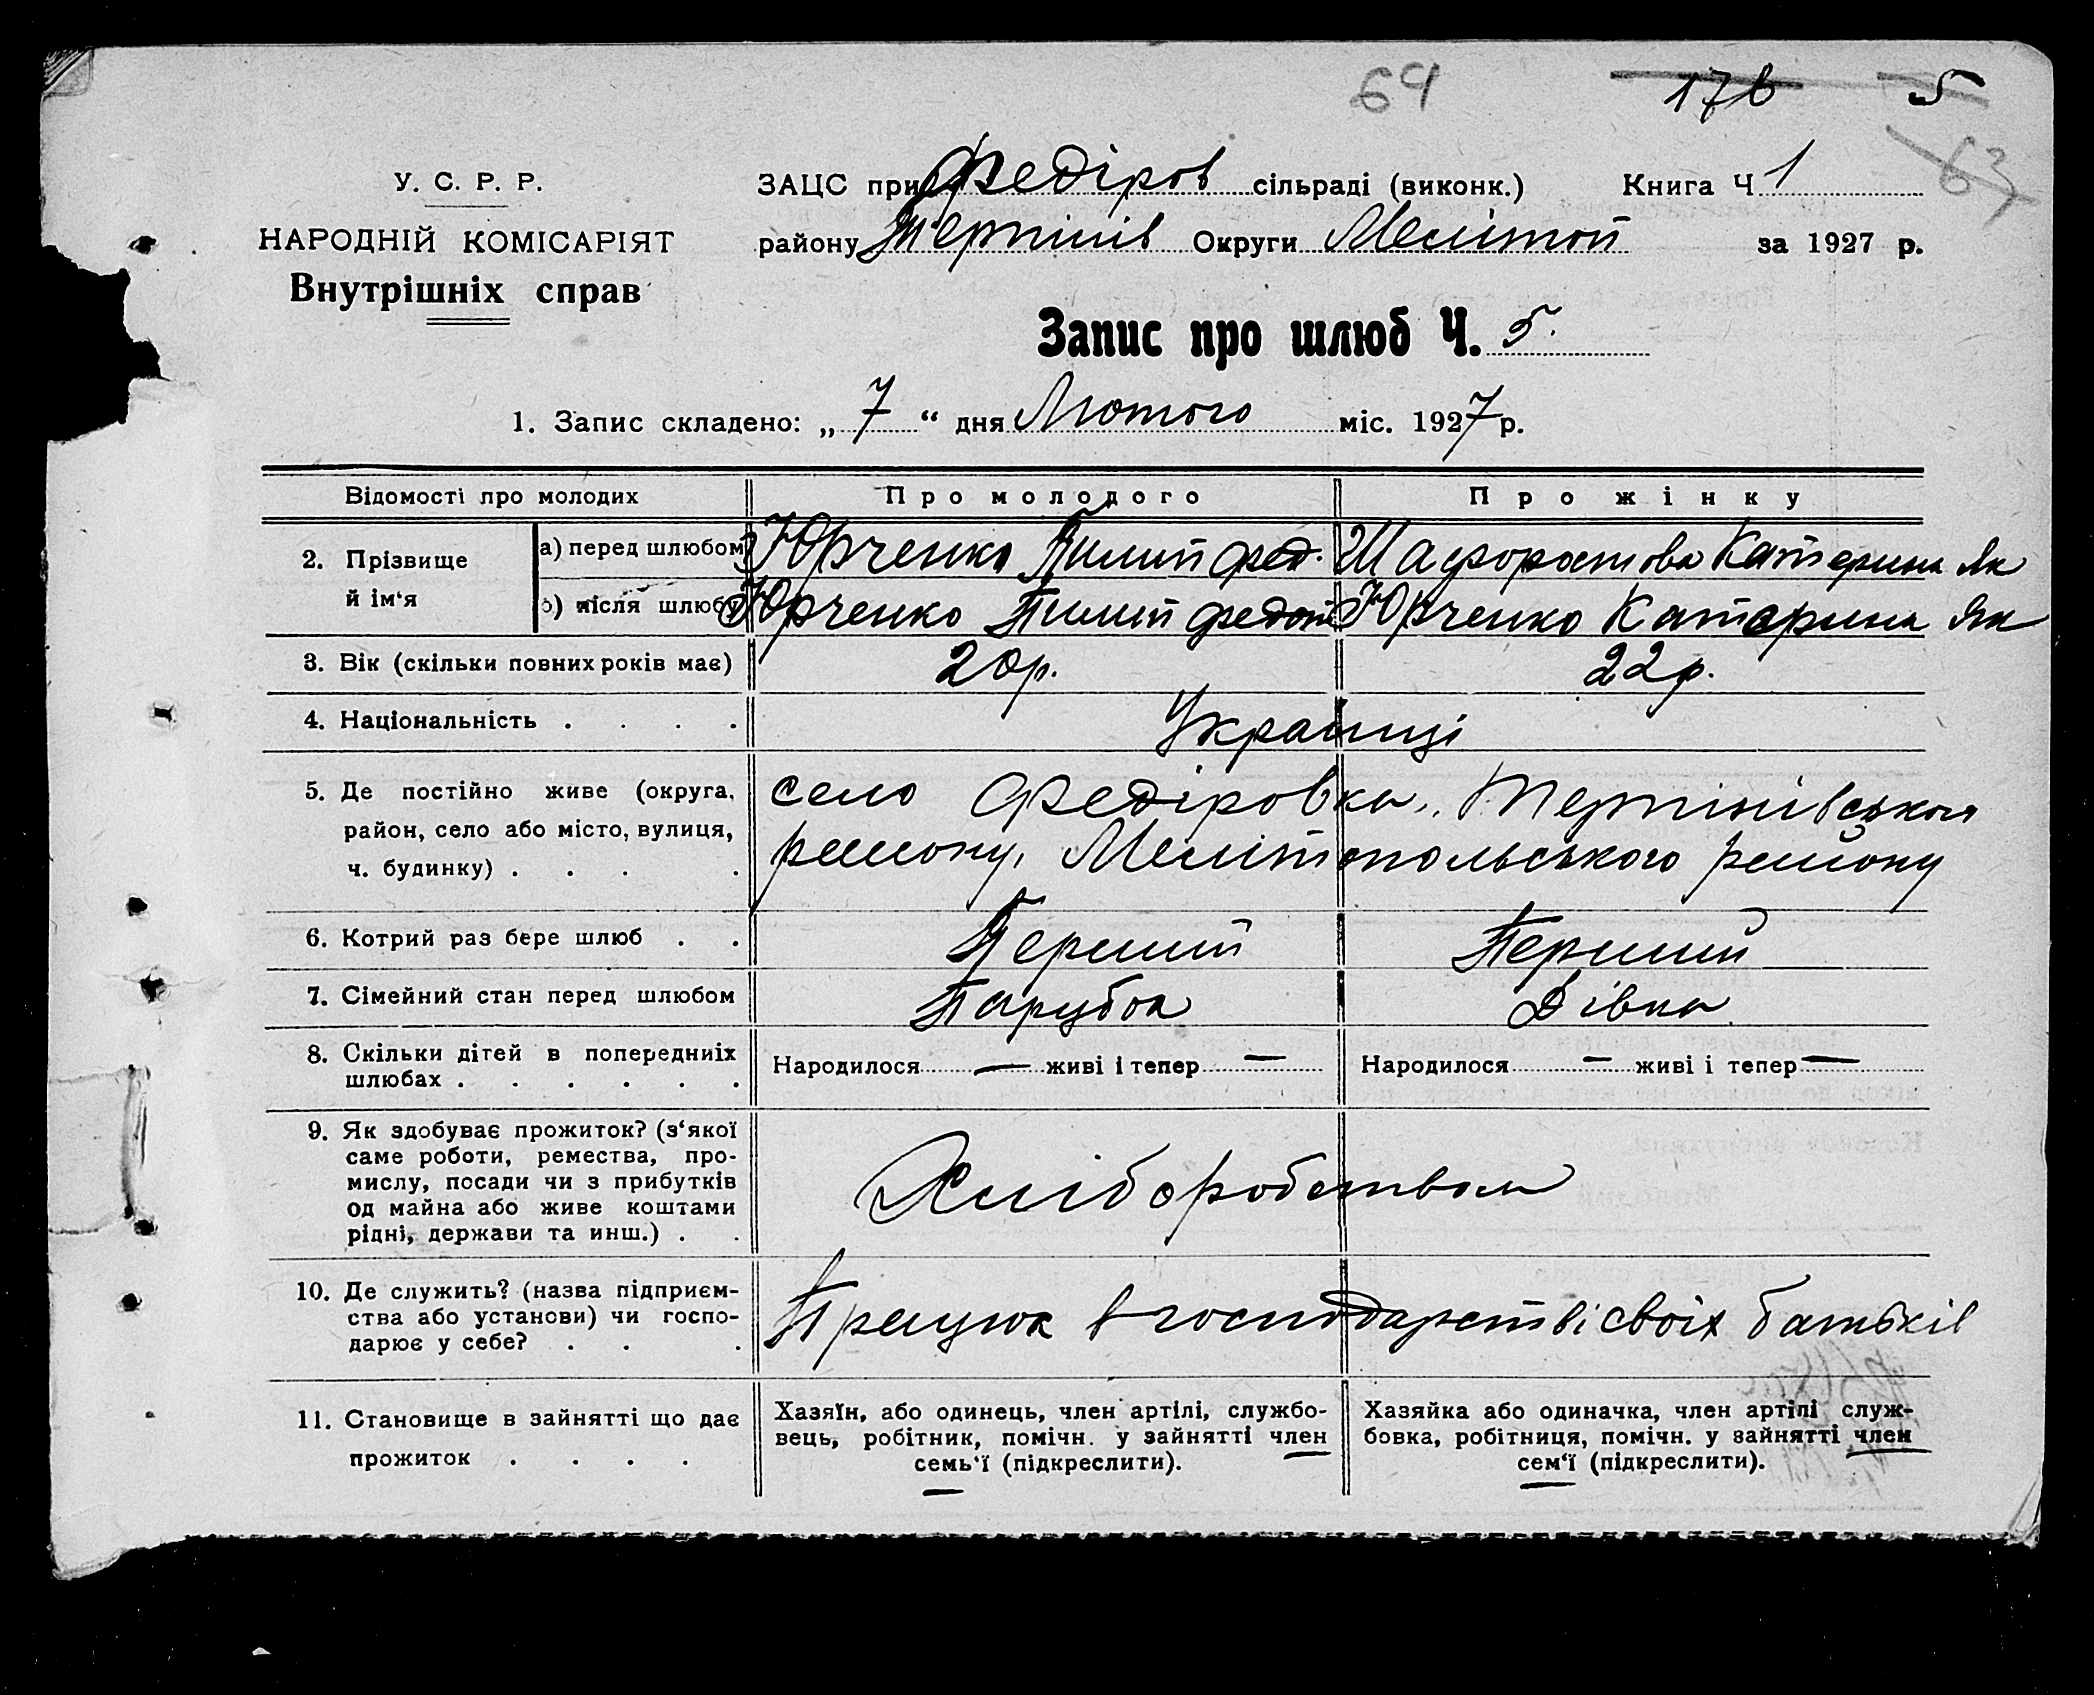 64 176 5
63
У. С. Р. Р.
НАРОДНІЙ КОМІСАРІЯТ
Внутрішніх справ
ЗАЦС при Федіров сільраді (виконк.) Книга Ч 1
району Терпінів Округи Мелітоп за 1927 р.
Запис про шлюб Ч. 5.
1. Запис складено: „ 7 “ дня Лютого міс. 1927 р.
Відомості про молодих Про молодого Про жінку
2. Прізвище й ім‘я
а) перед шлюбом Юрченко Пилип Фед. Шафоростова Катерина Як
б) після шлюбу Юрченко Пилип Федот Юрченко Катерина Як
3. Вік (скільки повних років має) 20р. 22р.
4. Національність . . . . Українці
5. Де постійно живе (округа,
район, село або місто, вулиця,
ч. будинку) . . . .
село Федіровка, Терпінівського
району, Мелітопольського району
6. Котрий раз бере шлюб . . Перший Перший
7. Сімейний стан перед шлюбом Парубок Дівка
8. Скільки дітей в попередниіх
шлюбах . . . . . .
Народилося — живі і тепер — Народилося — живі і тепер —
9. Як здобуває прожиток? (з‘якої
саме роботи, ремества, про-
мислу, посади чи з прибутків
од майна або живе коштами
рідні, держави та инш.) . .
Хліборобством
10. Де служить? (назва підприєм-
ства або установи) чи госпо-
дарює у себе? . . .
Працюок в господарстві своїх батьків
11. Становище в зайнятті що дає
прожиток . . . .
Хазяїн, або одинець, член артілі, службо-
вець, робітник, помічн. у зайнятті член
семь‘ї (підкреслити).
Хазяйка або одиначка, член артілі служ-
бовка, робітниця, помічн. у зайнятті член
сем‘ї (підкреслити).